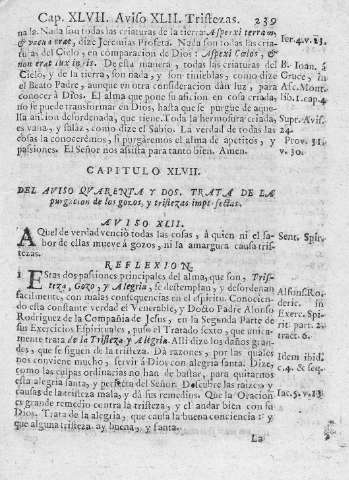 Cap. XLVII. Aviso XLII. Tristezas. 239
nada. Nada son todas las criaturas de la tierra: Aspexi terram,
& vacua erat, dize Jeremias Profeta. Nada son todas las cria- Jer. 4. v. 23.
turas del Cielo, en comparacion de Dios: Aspexi Cœlos, &
non erat lux in eis. De esta manera, todas las criaturas del B. Ioan. á
Cielo, y de la tierra, son nada, y son tinieblas; como dize Cruce, in
el Beato Padre, aunque en otra consideracion dàn luz, para Asc. Mont.
conocer à Dios. El alma que pone su aficion en cosa criada, lib. 1. cap. 4
no se puede transformar en Dios, hasta que se purgue de aque-
lla aficion desordenada, que tiene. Toda la hermosura criada, Supr. Avis.
es vana, y falàz, como dize el Sabio. La verdad de todas las 24.
cosas la conocerèmos, si purgàremos el alma de apetitos, y Prov. 31.
passiones. El Señor nos assista para tanto bien. Amen. v. 30.
CAPITULO XLVII.
DEL AVISO QVARENTA Y DOS. TRATA DE LA
purgacion de los gozos, y tristezas imperfectas.
AVISO XLII.
AQuel de verdad venciò todas las cosas, à quien ni el sa- Sent. Spir.
bor de ellas mueve à gozos, ni la amargura causa tris-
tezas.
REFLEXION.
1 EStas dos passiones principales del alma, que son, Tris-
teza, Gozo, y Alegria, se destemplan, y desordenan Alfons. Ro-
facilmente, con malas consequencias en el espiritu. Conocien- deric. in
do esta constante verdad el Venerable, y Docto Padre Alonso Exerc. Spi-
Rodriguez de la Compañia de Jesus, en la Segunda Parte de rit. part. 2.
sus Exercicios Espirituales, puso el Tratado sexto, que unica- tract. 6.
mente trata de la Tristeza y Alegria. Alli dize los daños gran-
des, que se siguen de la tristeza. Dà razones, por las quales
nos conviene mucho, servir à Dios con alegria santa. Dize, Idem ibid.
como las culpas ordinarias no han de bastar, para quitarnos c. 4. & seq.
esta alegria santa, y perfecta del Señor. Descubre las raizes, y
causas de la tristeza mala, y dà sus remedios. Que la Oracion Jac. 5. v. 13.
es grande remedio contra la tristeza, y el andar bien con su
Dios. Trata de la alegria, que causa la buena conciencia: y
que alguna tristeza ay buena, y santa.
La